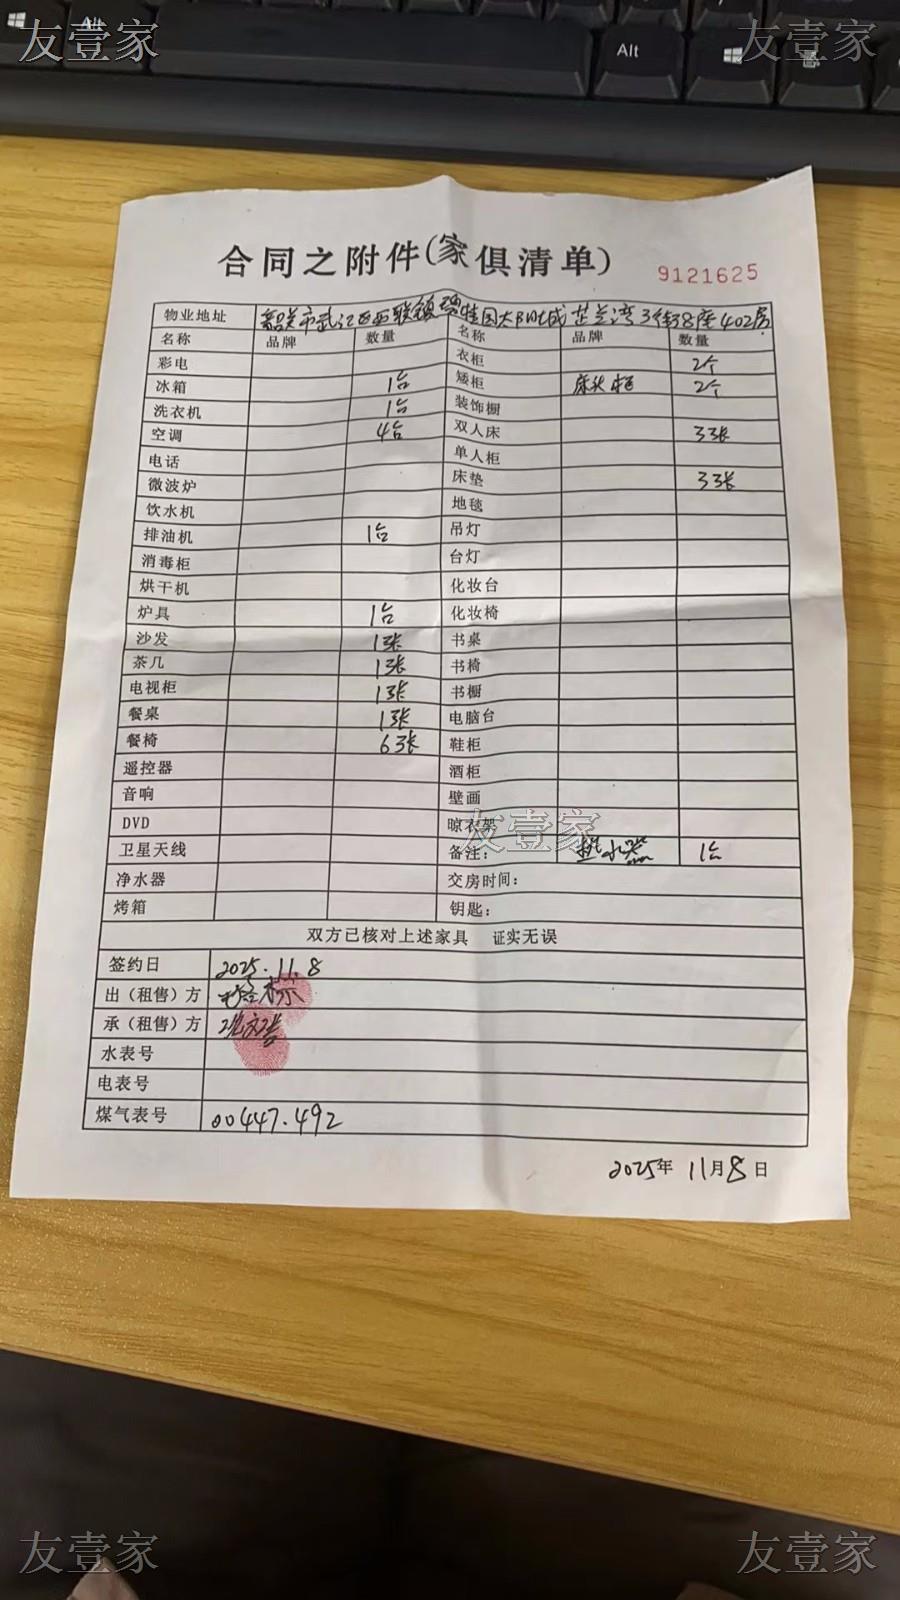 友壹家 友壹家
Alt Alt
合同之附件(家俱清单)
9121625
物业地址 韶关市武江区西联镇碧桂园太阳城芷兰湾3街8座402房
名称 品牌 数量 名称 品牌 数量
彩电 衣柜 2个
冰箱 1台 矮柜 床头柜 2个
洗衣机 1台 装饰橱
空调 4台 双人床 3张
电话 单人柜
微波炉 床垫 3张
饮水机 地毯
排油机 1台 吊灯
消毒柜 台灯
烘干机 化妆台
炉具 1台 化妆椅
沙发 1张 书桌
茶几 1张 书椅
电视柜 1张 书橱
餐桌 1张 电脑台
餐椅 6张 鞋柜
遥控器 酒柜
音响 壁画
DVD 晾衣架
友壹家
卫星天线 备注: 热水器 1台
净水器 交房时间:
烤箱 钥匙:
双方已核对上述家具 证实无误
签约日 2025.11.8
出（租售）方
承（租售）方
水表号
电表号
煤气表号 00447.492
2025年 11月8日
友壹家 友壹家